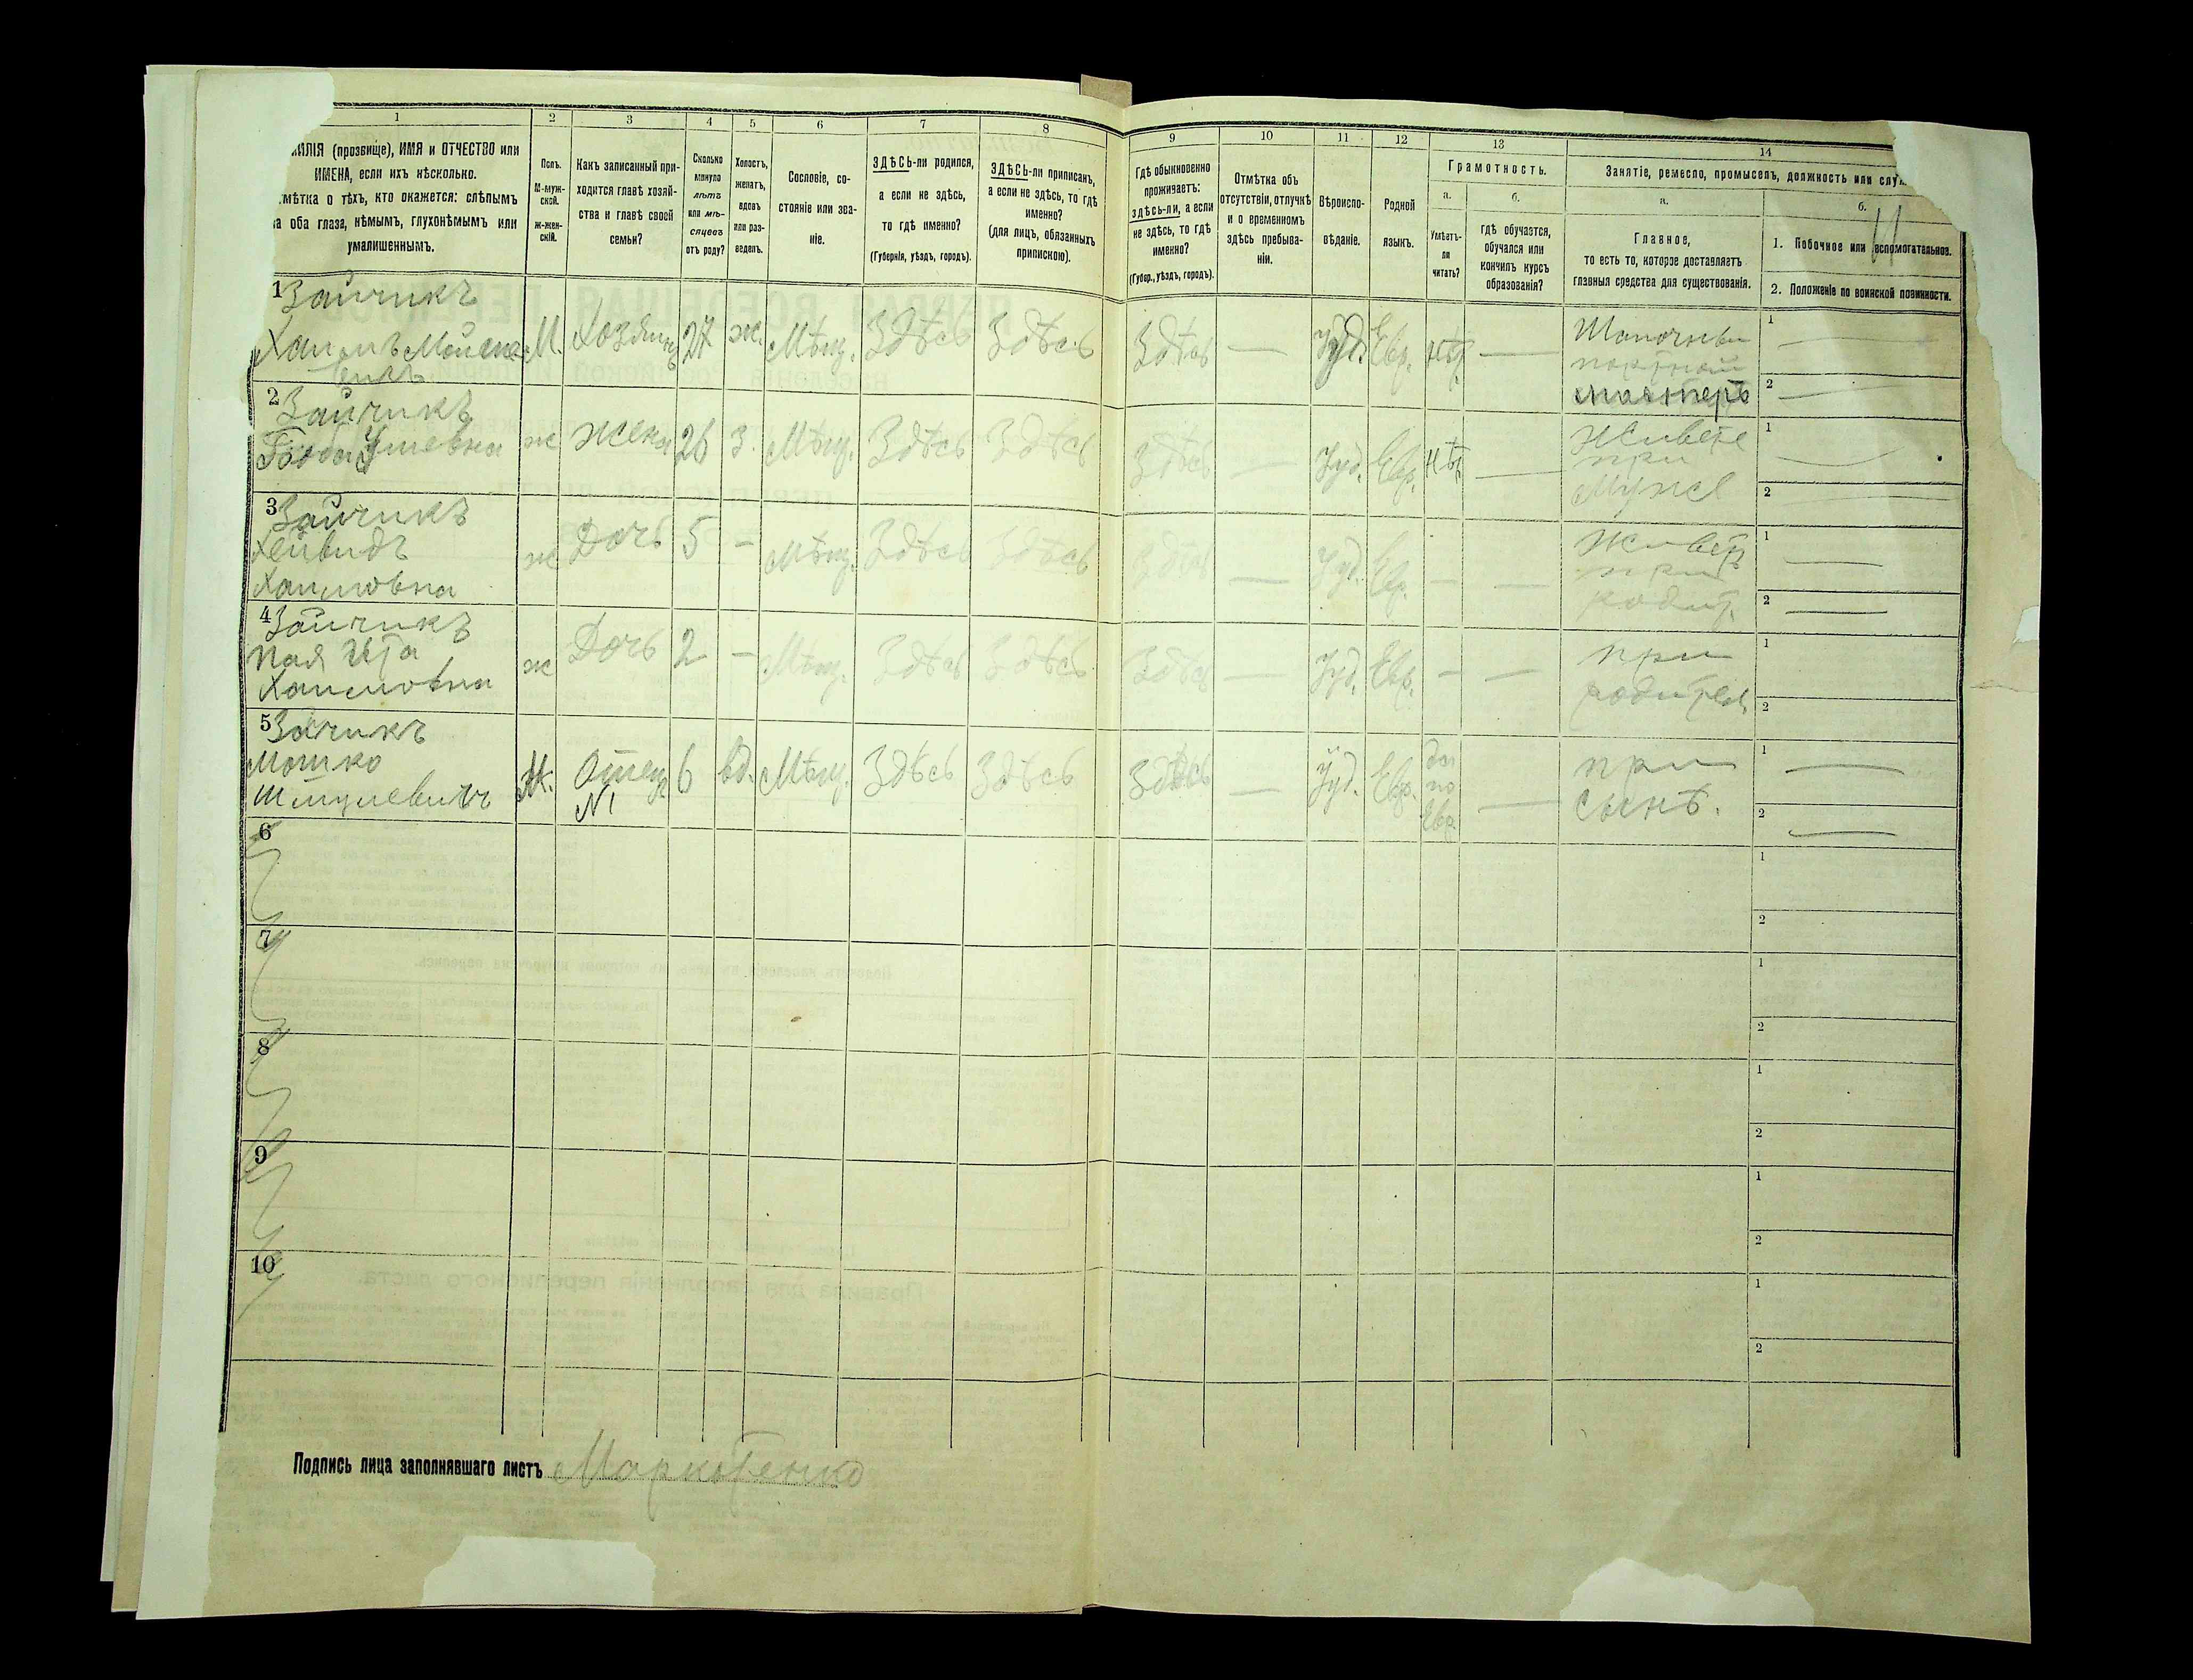 1 2 3 4 5 6 7 8 9 10 11 12 13 14
МИЛІЯ (прозвище), ИМЯ и ОТЧЕСТВО или
ИМЕНА, если ихъ нѣсколько.
мѣтка о тѣхъ, кто окажется: слѣпымъ
на оба глаза, нѣмымъ, глухонѣмымъ или
умалишеннымъ.
Полъ.
М-муж-
ской.
Ж-жен-
скій.
Какъ записанный при-
ходится главѣ хозяй-
ства и главѣ своей
семьи?
Сколько
минуло
лѣтъ
или мѣ-
сяцевъ
отъ роду?
Холостъ,
женатъ,
вдовъ
или раз-
веденъ.
Сословіе, со-
стояніе или зва-
ніе.
ЗДѢСЬ-ли родился,
а если не здѣсь,
то гдѣ именно?
(Губернія, уѣздъ, городъ).
ЗДѢСЬ-ли приписанъ,
а если не здѣсь, то гдѣ
именно?
(для лицъ, обязанныхъ
припискою).
Гдѣ обыкновенно
проживаетъ:
здѣсь-ли, а если
не здѣсь, то гдѣ
именно?
(Губер., уѣздъ, городъ).
Отмѣтка объ
отсутствіи, отлучкѣ
и о временномъ
здѣсь пребыва-
ніи.
Вѣроиспо-
вѣданіе.
Родной
языкъ.
Грамотность.
а.
Умѣетъ-
ли
читать?
б.
гдѣ обучается,
обучался или
кончилъ курсъ
образованія?
Занятіе, ремесло, промыселъ, должность или служ
а.
Главное,
то есть то, которое доставляетъ
главныя средства для существованія.
б.
1. Побочное или вспомогательное.
2. Положеніе по воинской повинности.
1 Зайчикъ
Хаимъ Мошко
вичъ
М. Хозяинъ 27 ж. Мѣщ. Здѣсь Здѣсь Здѣсь — Іуд. Евр. нѣт. —
Шапочный
портной
мастеръ
1 —
2 —
2 Зайчикъ
ж жена 26 з. Мѣщ. Здѣсь Здѣсь Здѣсь — Іуд. Евр. нѣт —
Живетъ
при
мужѣ
1 —
2 —
3 Зайчикъ
Хаимовна
ж Дочь 5 - Мѣщ. Здѣсь Здѣсь Здѣсь — Іуд. Евр. — —
Живетъ
при
родит.
1 —
2 —
4 Зайчикъ
Хаимовна
ж Дочь 2 - Мѣщ. Здѣсь Здѣсь Здѣсь — Іуд. Евр. — —
при
родител
1
2
5 Зайчикъ
Мошко
Шмулевичъ
М. Отецъ 6 вд. Мѣщ. Здѣсь Здѣсь Здѣсь — Іуд. Евр.
N1
да
по
Евр.
—
при
сынѣ.
1 —
2 —
6
1
2
7
1
2
8
1
2
9
1
2
10
1
2
Подпись лица заполнявшаго листъ Маркотенко